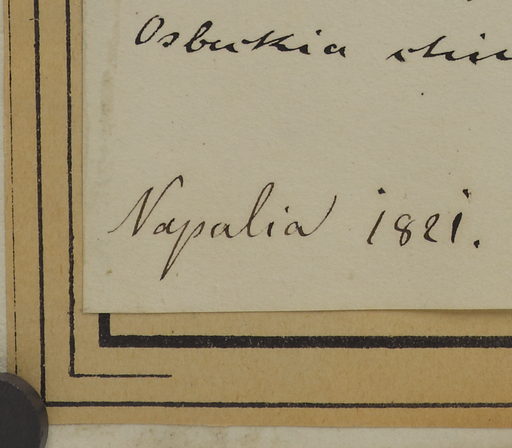 Osbeckia chin
Napalia 1821.